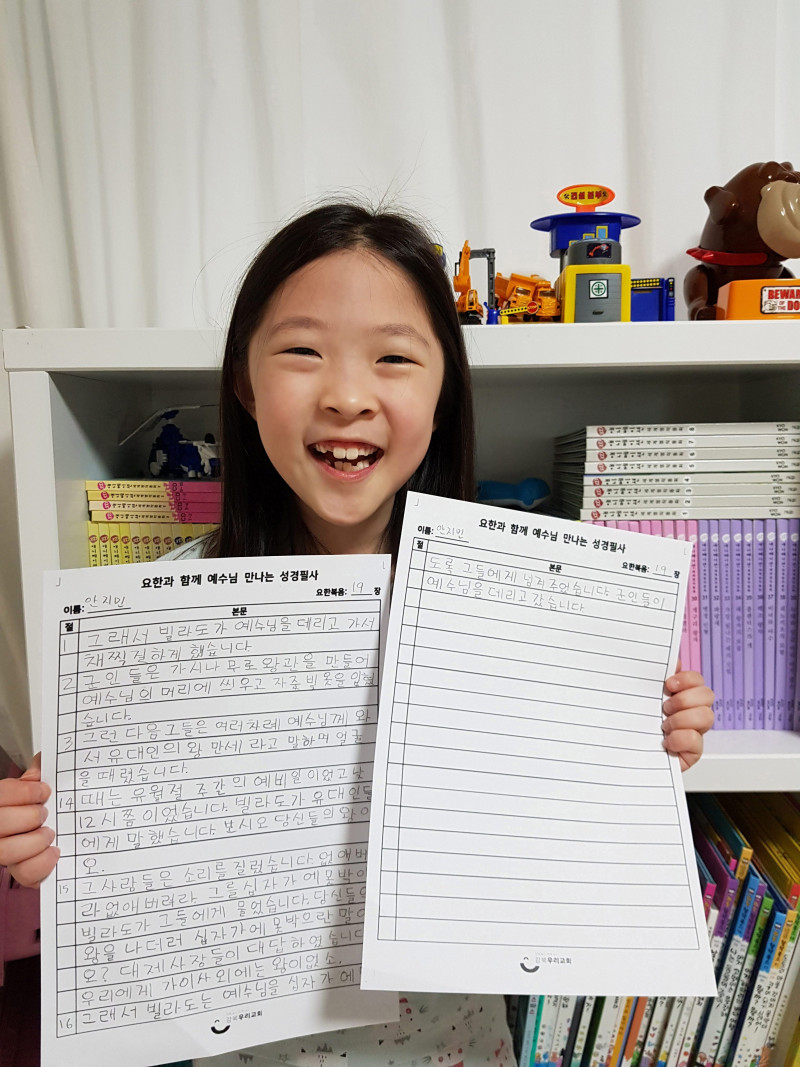 요한과 함께 예수님 만나는 성경필사
이름: 안지민
요한복음: 19 장
절 본문
1 그래서 빌라도가 예수님을 데리고 가서
채찍질하게 했습니다.
2 군인 들은 가시나 무로 왕관을 만들어
예수님의 머리에 씌우고 자준 빛 옷을 입혔
습니다.
3 그런 다음 그들은 여러차례 예수님께 와
서 유대인의 왕 만세 라고 말하며 얼굴
을 때렸습니다.
14 때는 유월절 주간의 예비일이었고 낮
12시쯤 이었습니다. 빌라도가 유대인들
에게 말했습니다. 보시오 당신들의 왕이
오.
15 그사람들은 소리를 질렀습니다. 없애버
라 없애 버려라. 그를 십자가에 못박이
빌라도가 그들에게 물었습니다. 당신들의
왕을 나더러 십자가에 못박으란 말이
오? 대제사장들이 대답하였습니다
우리에게 가이사 외에는 왕이없소.
16 그래서 빌라도는 예수님을 십자가에
강북우리교회
요한과 함께 예수님 만나는 성경필사
이름: 안지민
요한복음: 19 장
절 본문
도록 그들에게 넘겨주었습니다. 군인들이
예수님을 데리고 갔습니다
강북우리교회
BEWARE
OF THE
DO